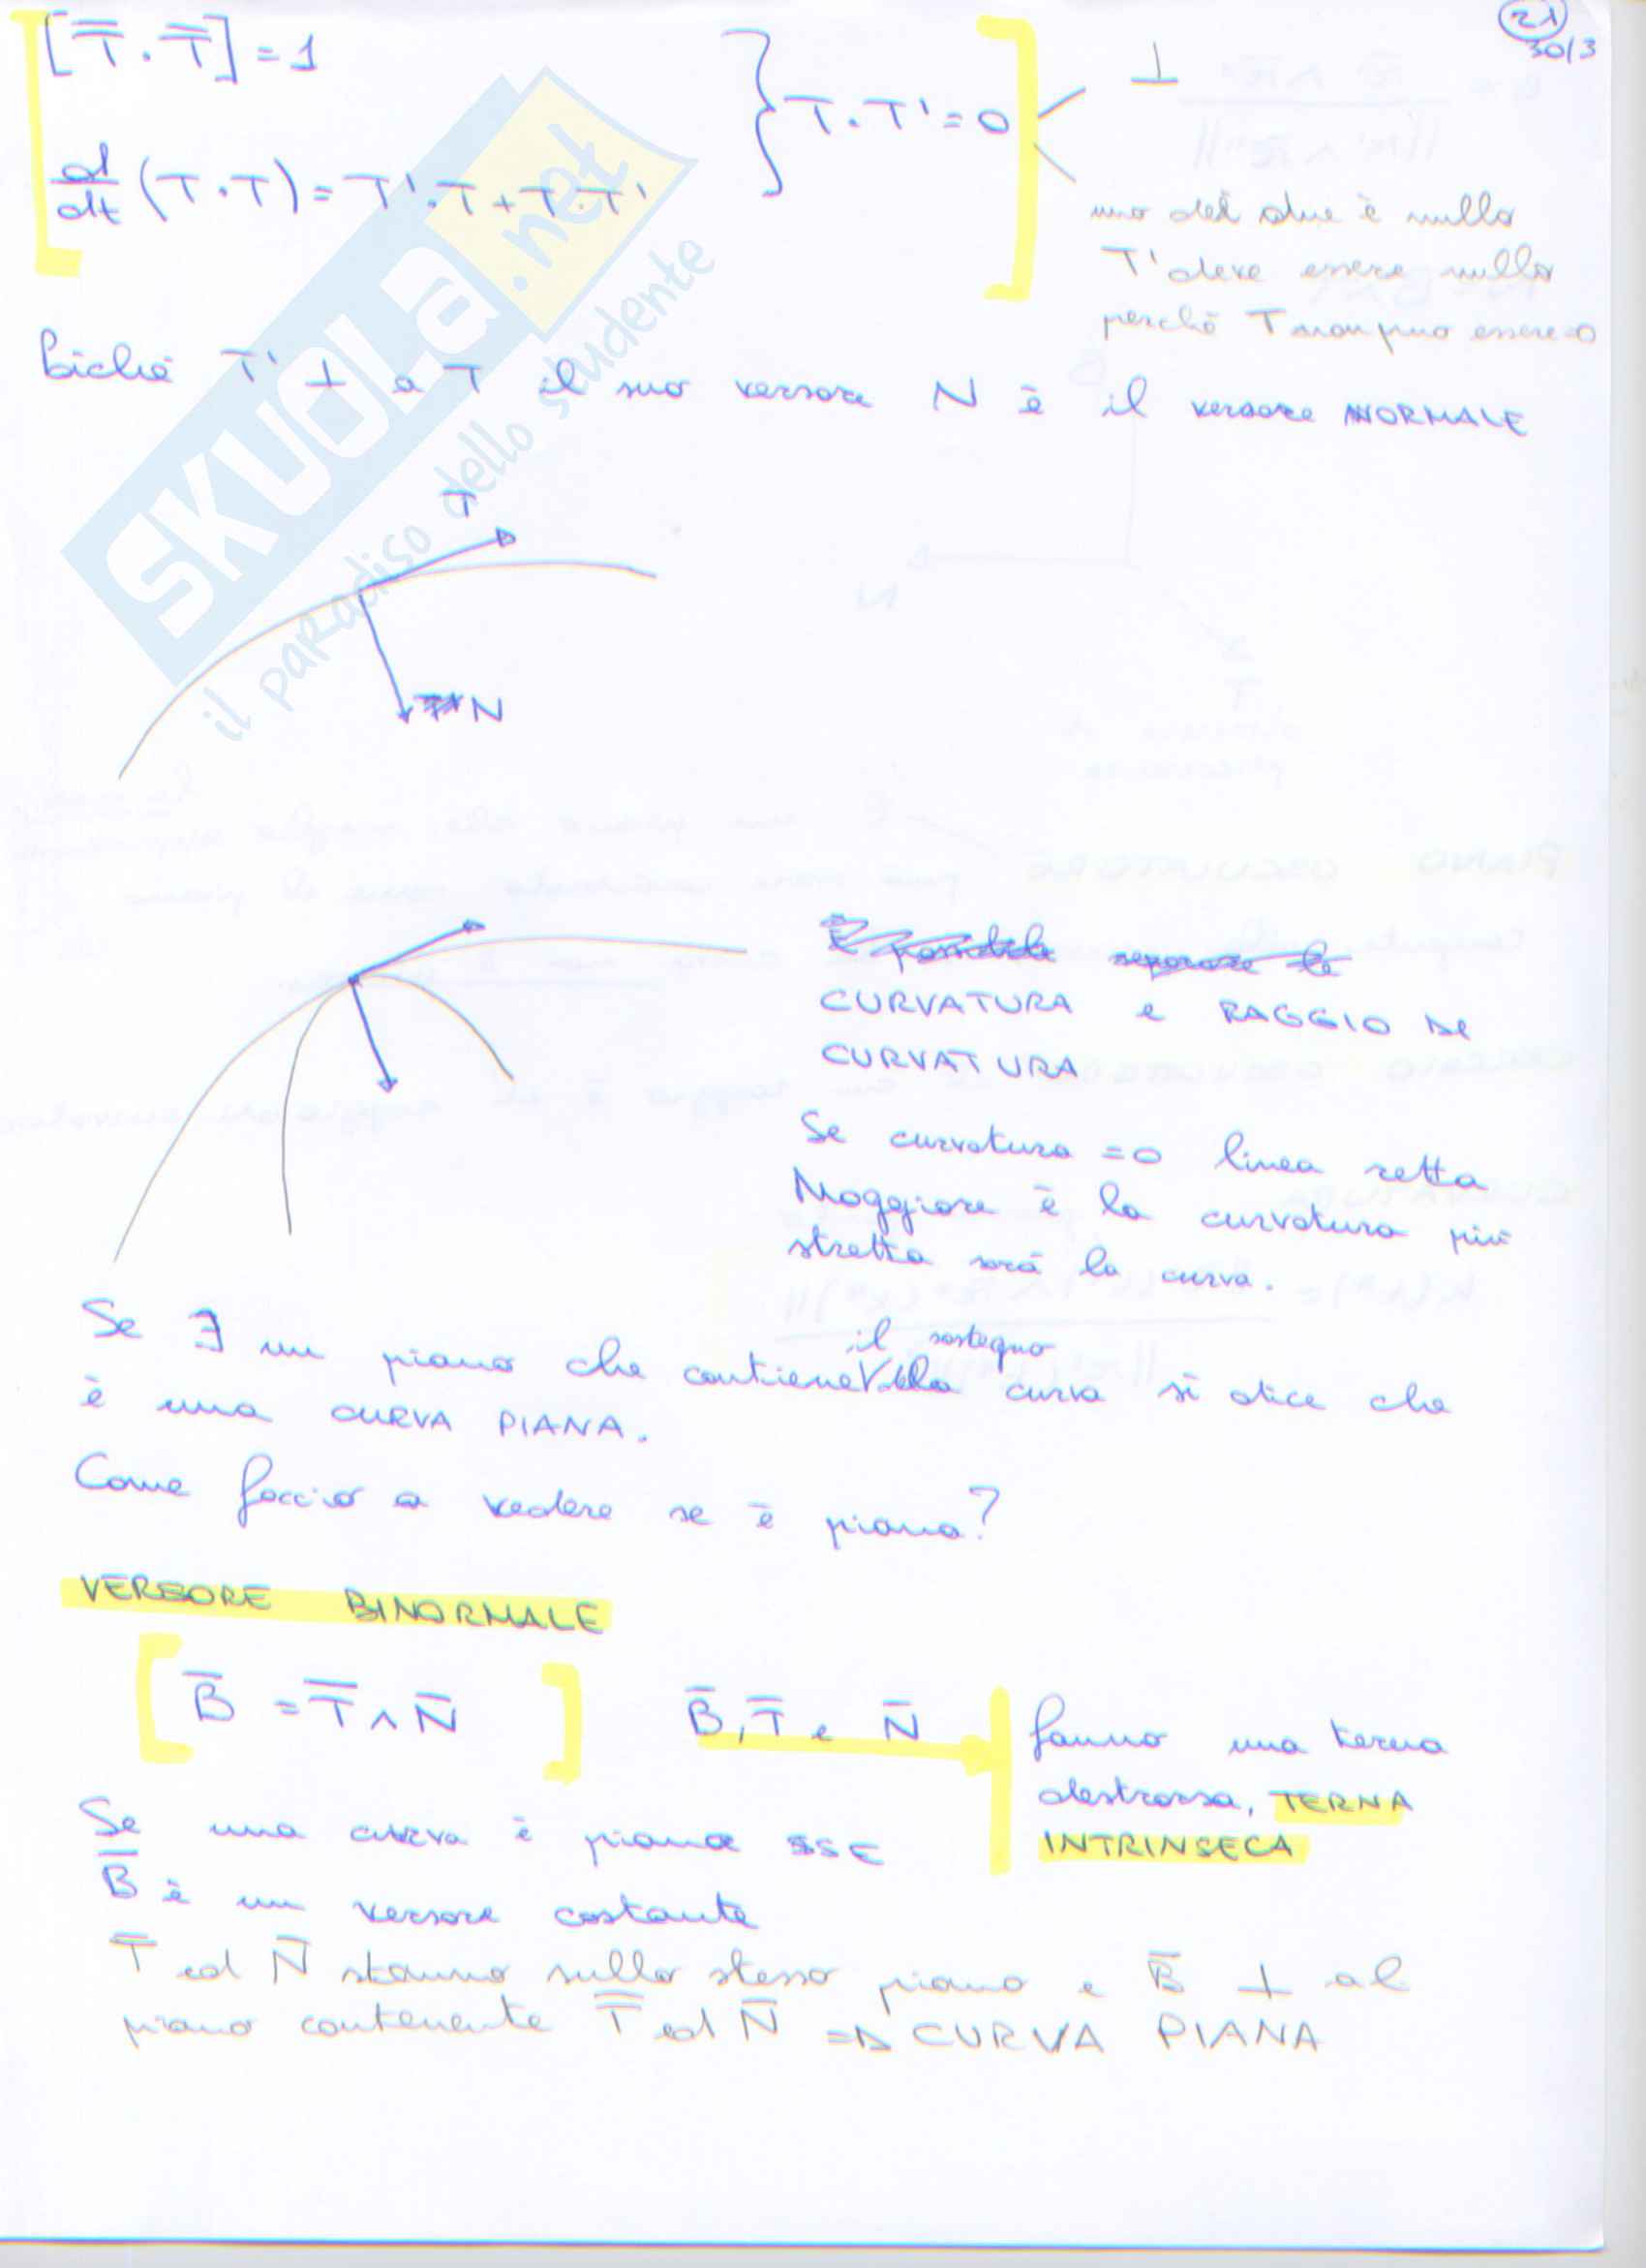 21
30/3
[T̅ . T̅] = 1
d/dt (T . T) = T' . T + T . T'
} T . T' = 0
⊥
uno dei due è nullo
T' deve essere nullo
perchè T non può essere = 0
Poichè T' ⊥ a T il suo versore N è il versore NORMALE
T
N
È possibile separare le
CURVATURA e RAGGIO DI
CURVATURA
Se curvatura = 0 linea retta
Maggiore è la curvatura più
stretta sarà la curva.
Se ∃ un piano che contiene il sostegno della curva si dice che
è una CURVA PIANA.
Come faccio a vedere se è piana?
VERSORE BINORMALE
[B̅ = T̅ ∧ N̅]
B̅, T̅ e N̅
fanno una terna
destrorsa, TERNA
INTRINSECA
Se una curva è piana SSE
B̅ è un versore costante
T̅ ed N̅ stanno sullo stesso piano e B̅ ⊥ al
piano contenente T̅ ed N̅ => CURVA PIANA
SKUOLA.net
il paradiso dello studente